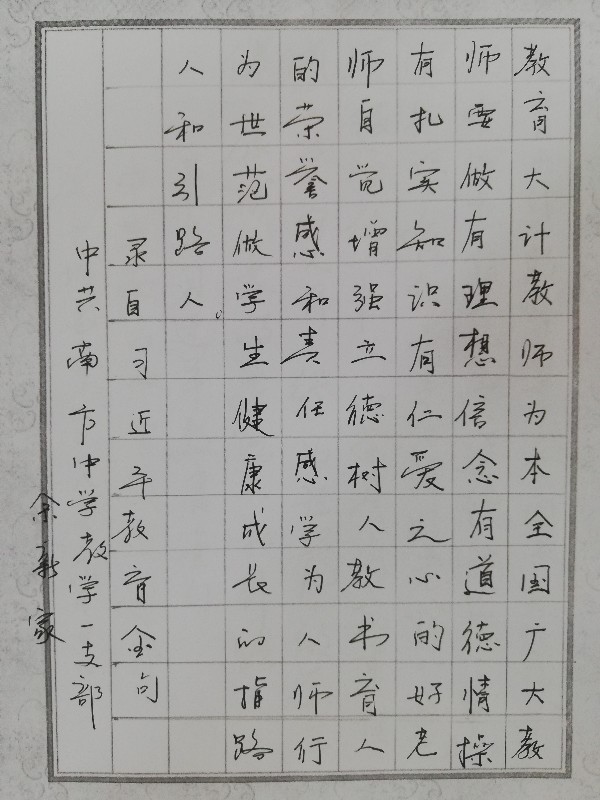 教育大计教师为本全国广大教
师要做有理想信念有道德情操
有扎实知识有仁爱之心的好老
师自觉增强立德树人教书育人
的荣誉感和责任感学为人师行
为世范做学生健康成长的指路
人和引路人。
录自习近平教育金句
中共南方中学教学一支部
余新家